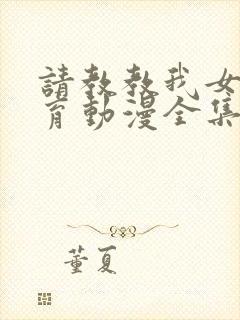 請教教我女
育動漫全集
董夏